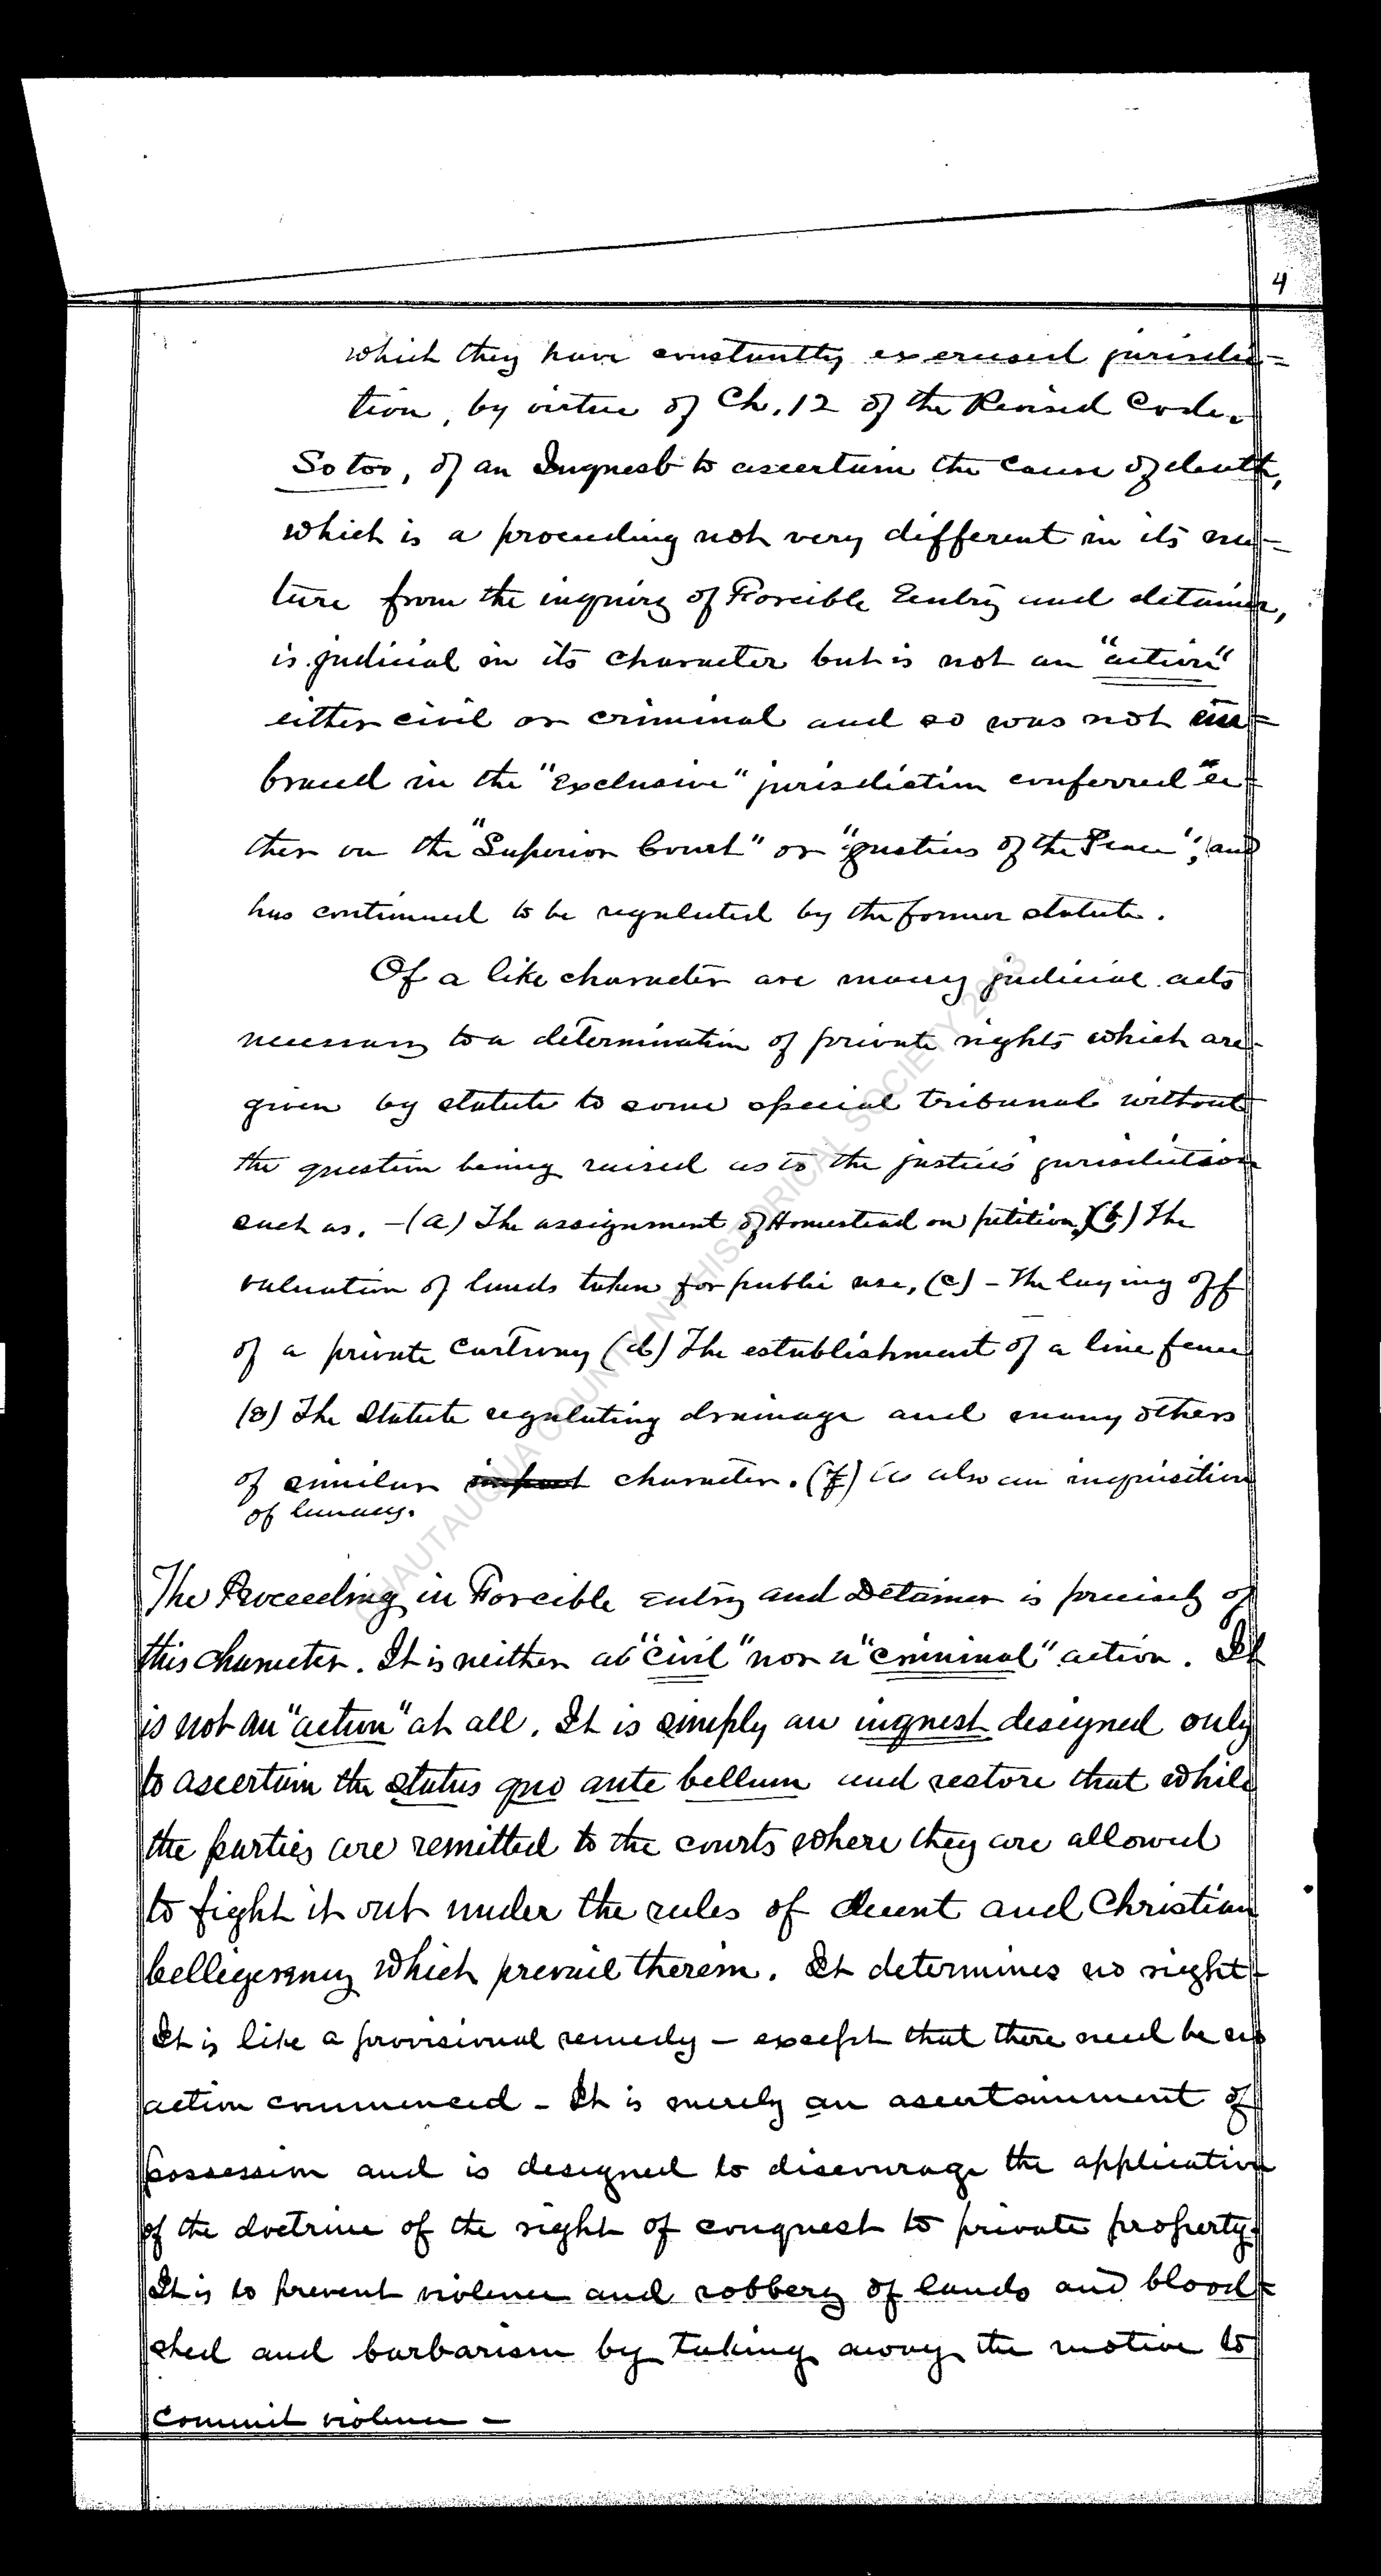 4
which they have constantly exercised jurisdic=
tion, by virtue of Ch. 12 of the Revised Code.
So too, of an Inquest to ascertain the cause of death,
which is a proceeding not very different in its na=
ture from the inquiry of Forcible Entry and detainer,
is judicial in its character but is not an "action"
either civil or criminal and so was not em=
braced in the "exclusive" jurisdiction conferred ei=
ther on the "Superior Court" or "justices of the Peace", and
has continued to be regulated by the former statute.
Of a like character are many judicial acts
necessary to a determination of private rights which are
given by statute to some special tribunal without
the question being raised as to the justices jurisdiction
such as. - (a) The assignment of Homestead on petition, (b) The
valuation of lands taken for public use, (c) - The laying off
of a private cartway (d) The establishment of a line fence
(e) The Statute regulating drainage and many others
of similar character. (f) is also an inquisition
of lunacy.
The Proceeding in Forcible entry and Detainer is precisely of
this character. It is neither a "civil" nor a "criminal" action. It
is not an "action" at all. It is simply an inquest designed only
to ascertain the status quo ante bellum and restore that while
the parties are remitted to the courts where they are allowed
to fight it out under the rules of decent and Christian
belligerency which prevail therein. It determines no right-
It is like a provisional remedy - except that there need be no
action commenced - It is merely an ascertainment of
possession and is designed to discourage the application
of the doctrine of the right of conquest to private property.
It is to prevent violence and robbery of lands and blood=
shed and barbarism by taking away the motive to
commit violence -
CHAUTAUQUA COUNTY NY HISTORICAL SOCIETY